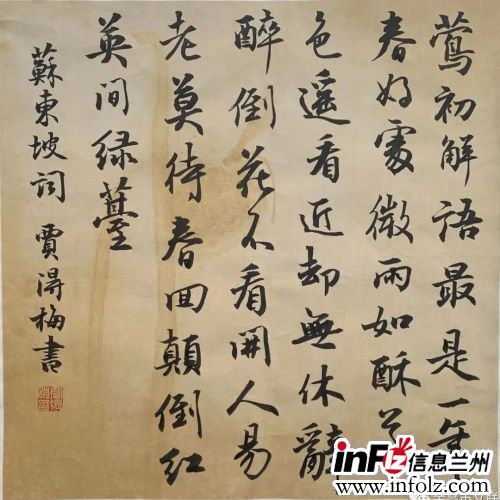 莺初解語最是一年
春好處微雨如酥草
色遥看近却無休辭
醉倒花不看開人易
老莫待春回顛倒红
英间绿薹
蘇東坡词 賈淂梅書
inFolz信息兰州
www.infolz.com